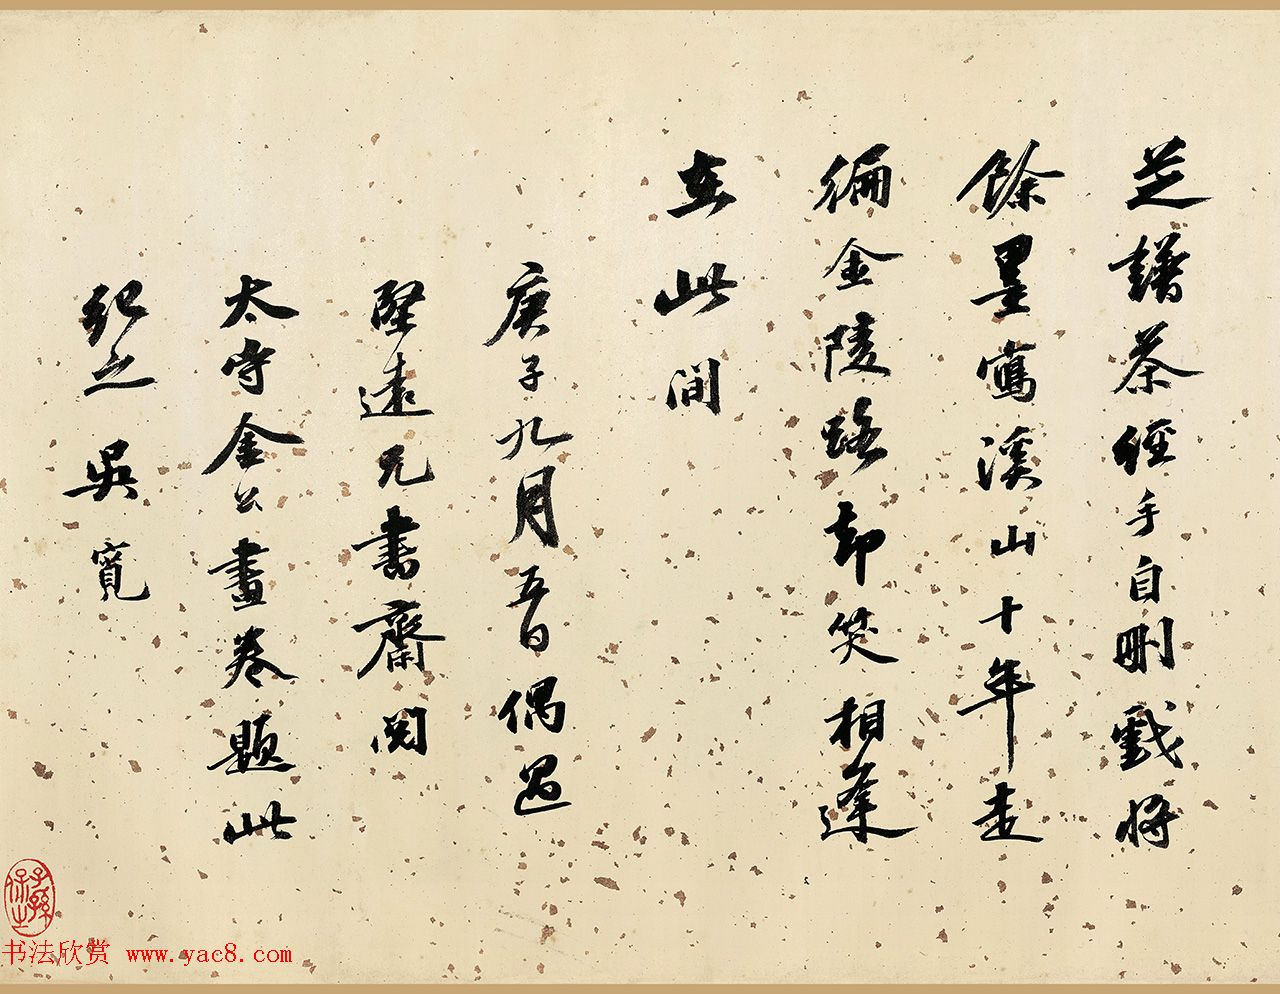 芝譜茶經手自刪戲將
餘墨寫溪山十年走
徧金陵路却笑相逢
在此間
庚子九月五日偶過
堅遠兄書齋閱
太守金公畫卷題此
紀之吳寬
子孫永之
书法欣赏 www.yac8.com